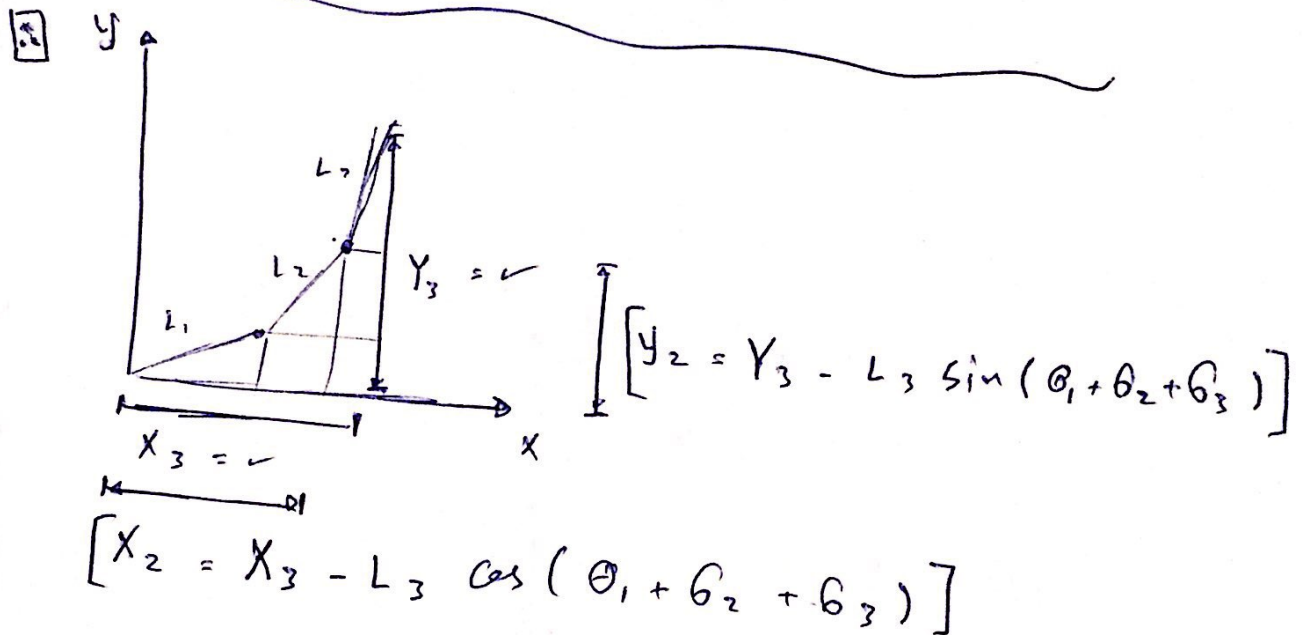 y
L₃
L₂
Y₃ = ✓
L₁
[y₂ = Y₃ - L₃ sin(θ₁+θ₂+θ₃)]
X₃ = ✓
X
[X₂ = X₃ - L₃ cos(θ₁+θ₂+θ₃)]